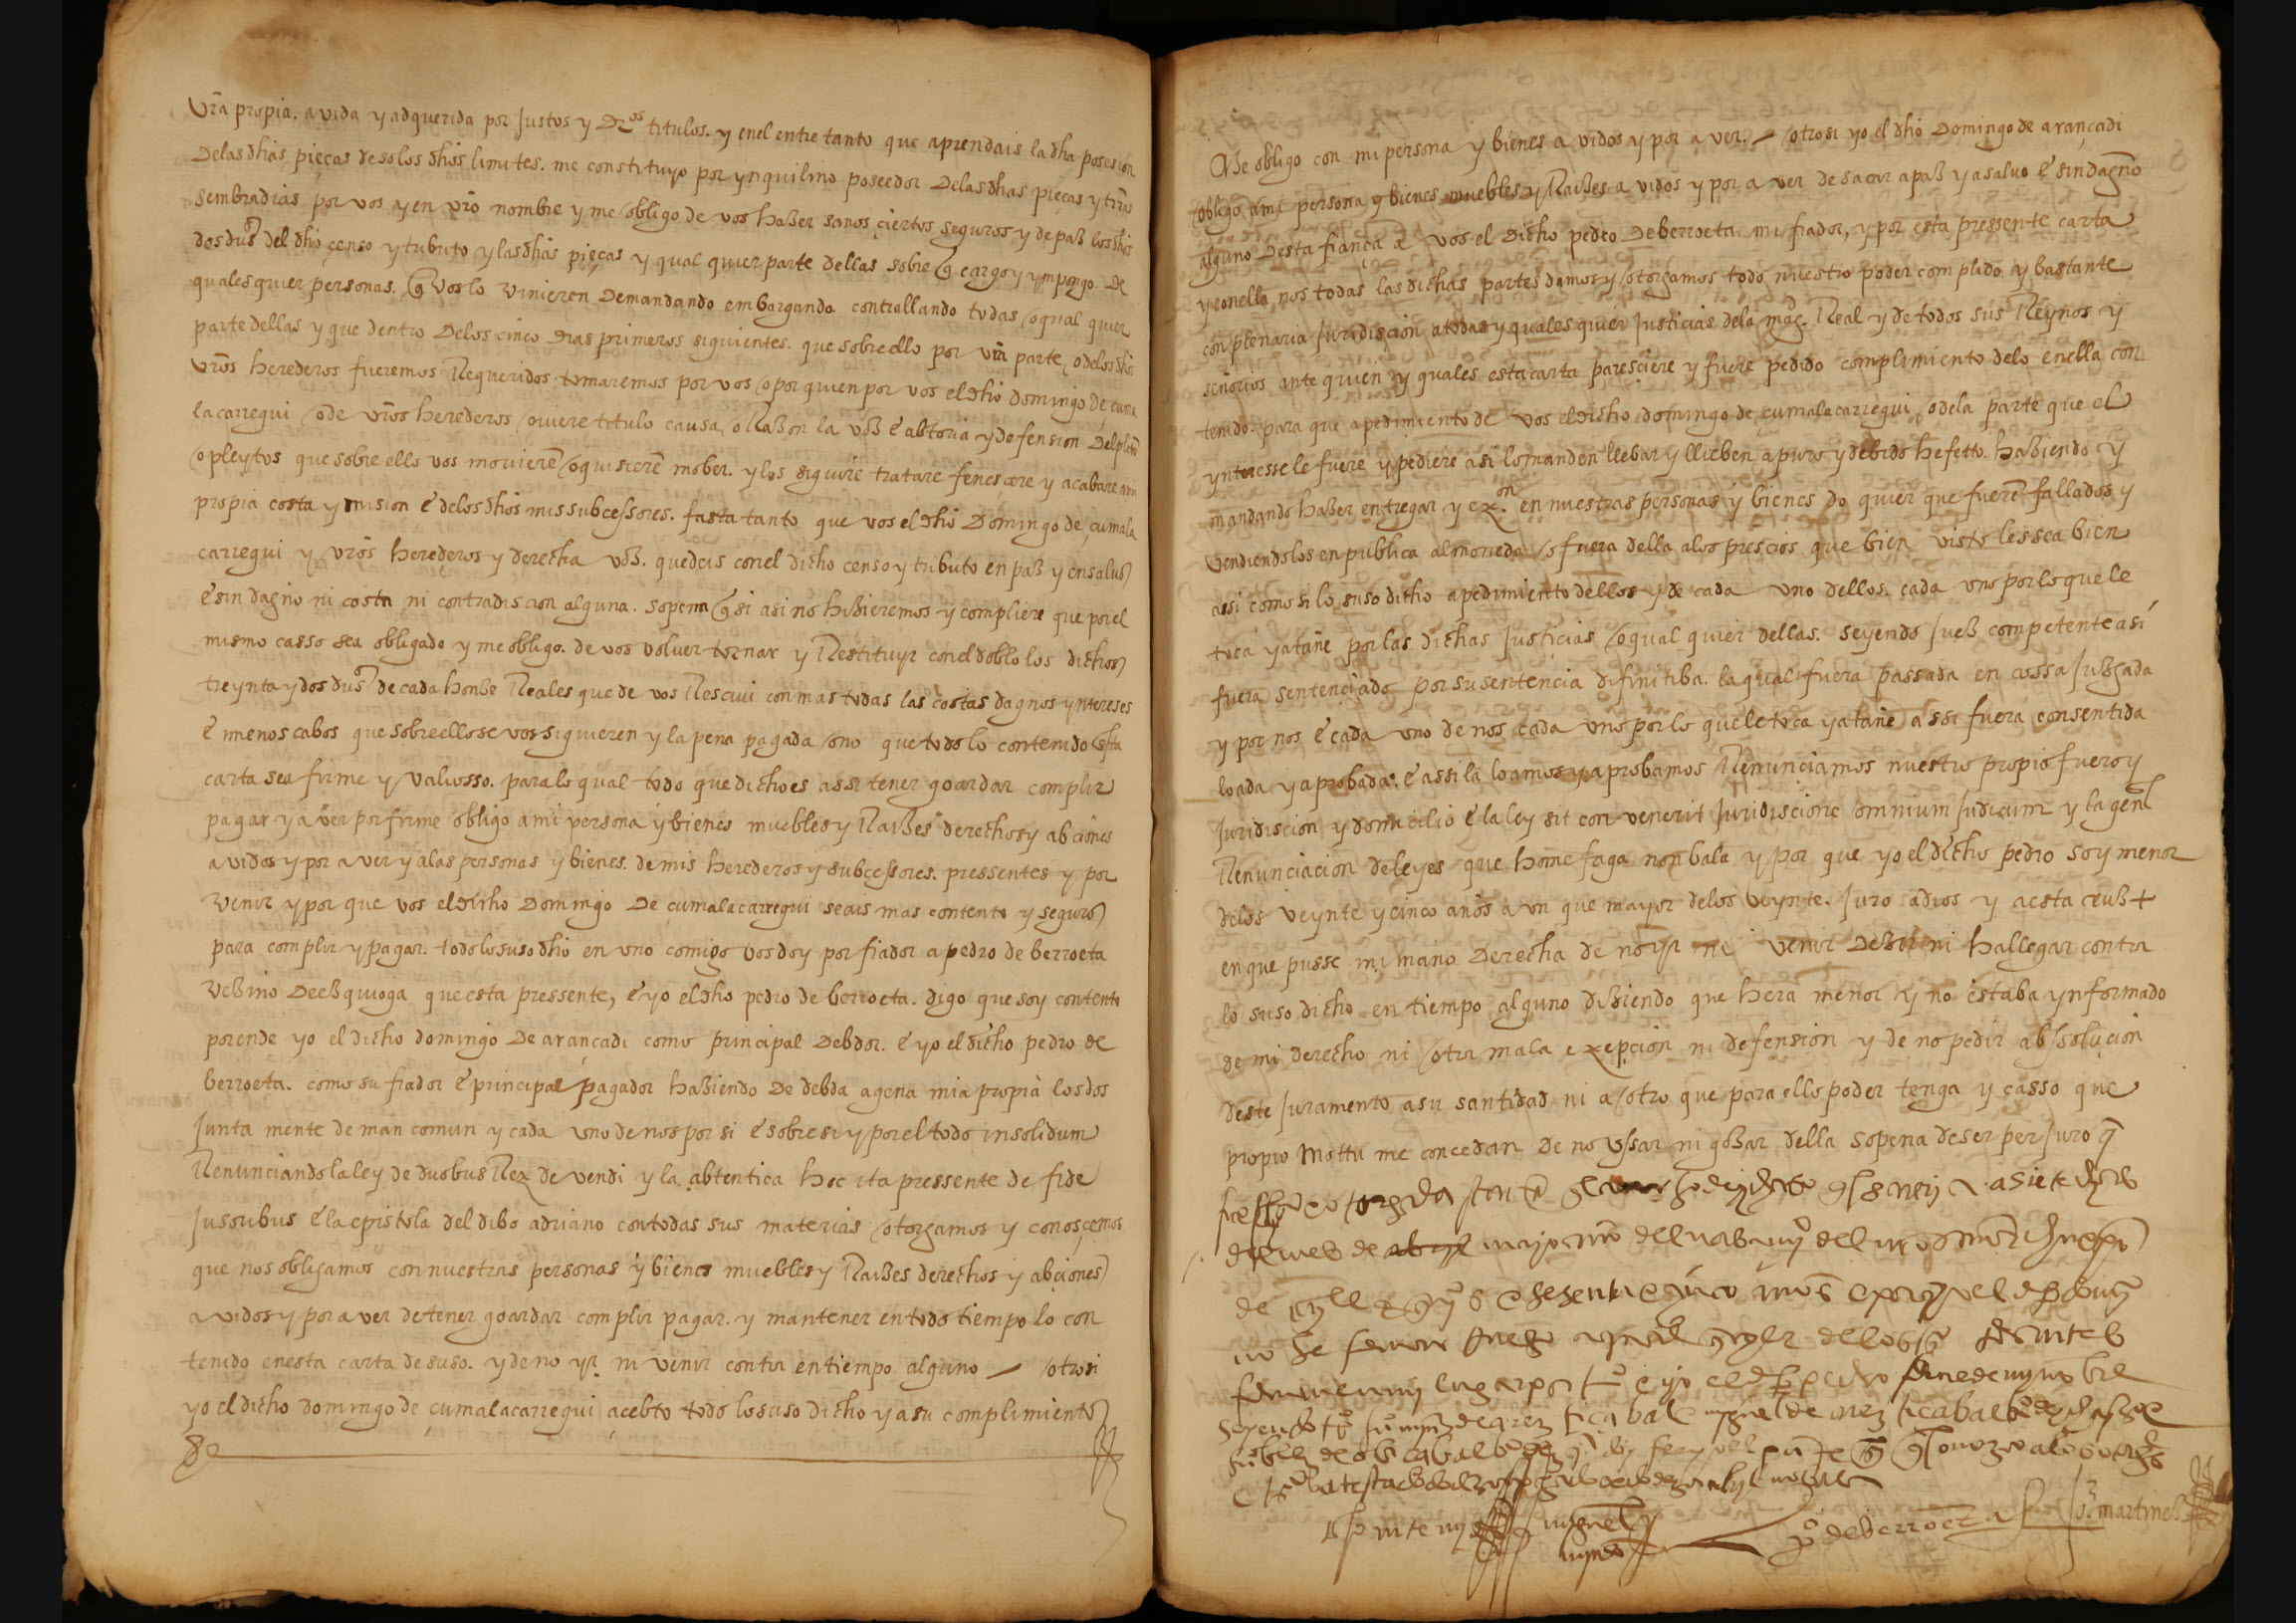 vr̃a propia. avida y adquerida por Justos y Dros titulos. y enel entre tanto que aprendais la dha posesion
Delas dhas pieças deso los dhos limites. me constituyo por ynquilino poseedor Delas dhas pieças y trr̃as
sembradias por vos y en vr̃o nombre y me obligo de vos haßer sanos çiertos seguros y de paß los dhos
dos dus del dho çenso y tributo y las dhas pieças y qual quier parte dellas sobre q̃ cargo y ympongo. De
quales quier personas. q̃ vos lo vinieren Demandando embargando contrallando todas o qual quier
parte dellas y que dentro Delos cinco dias primeros siguientes. que sobre ello por vr̃a parte o delos dhos
vr̃os herederos fueremos Requeridos tomaremos por vos o por quien por vos el dho domingo de çuma
lacarregui o de vr̃os herederos oviere titulo causa o Raßon la voß e abtoria y defension Del pleito
o pleytos que sobre ello vos movierẽ o quisierẽ mober. y los siguire tratare fenesçere y acabare a mi
propia costa y mision e delos dhos mis subcessores. fasta tanto que vos el dho Domingo de çumala
carregui y vr̃os herederos y derecha voß. quedeis con el dicho censo y tributo en paß y en saluo
e sin dagno ni costa ni contradiscion alguna. sopena q̃ si asi no hißieremos y compliere que por el
mismo casso sea obligado y me obligo. de vos volver tornar y Restituyr con el doblo los dichos
treynta y dos dus de cada honße Reales que de vos Resciui con mas todas las costas dagnos yntereses
e menoscabos que sobre ello se vos siguieren y la pena pagada o no que todo lo contenido esta
carta sea firme y valiosso. para lo qual todo que dicho es assi tener goardar complir
pagar y aver por firme obligo a mi persona y bienes muebles y Raißes derechos y abciones
avidos y por aver y alas personas y bienes. de mis herederos y subcessores. pressentes y por
venir y por que vos el dicho Domingo De çumalacarregui seais mas contento y seguro
para complir y pagar. todo lo suso dho en uno comigo vos doy por fiador a pedro de berroeta
veßino De eßquioga que esta pressente, e yo el dho pedro de berroeta. digo que soy contento
porende yo el dicho domingo De arançadi como principal Debdor. e yo el dicho pedro de
berroeta. como su fiador e principal pagador haßiendo De debda agena mia propia los dos
Junta mente de man comun y cada uno de nos por si e sobre si y por el todo insolidum
Renunciando la ley de duobus Rex de vendi y la abtentica hoc ita pressente de fide
Jusoribus e la epistola del dibo adriano con todas sus materias otorgamos y conosçemos
que nos obligamos con nuestras personas y bienes muebles y Raißes derechos y abciones
avidos y por aver de tener goardar complir pagar. y mantener en todo tiempo lo con
tenido en esta carta de suso. y de no yr. ni venir contra en tiempo alguno — otrosi
yo el dicho domingo de çumalacarregui açebto todo lo suso dicho y a su complimiento
Me obligo con mi persona y bienes avidos y por aver. — otrosi yo el dho Domingo de arançadi
obligo a mi persona y bienes muebles y Raißes avidos y por aver de sacar a paß y a saluo e sin dagno
alguno Desta fiança a vos el Dicho pedro De berroeta mi fiador, y por esta pressente carta
y con ella nos todas las dichas partes damos y otorgamos todo nuestro poder complido y bastante
con plenaria Juridiscion a todas y quales quier Justicias dela mag. Real y de todos sus Reynos y
señorios ante quien y quales esta carta paresçiere y fuere pedido complimiento delo en ella con
tenido. para que a pedimiento de vos el dicho domingo de çumalacarregui o dela parte que el
ynteresse le fuere y pediere asi lo manden llebar y llieben a puro y debido hefetto. haßiendo y
mandando haßer entregar y ex.on en nuestras personas y bienes do quier que fuerẽ fallados y
vendiendolos en publica almoneda o fuera della alos prescios que bien visto les sea bien
assi como si lo suso dicho a pedimiento dellos y de cada uno dellos. cada uno por lo que le
toca y atañe por las dichas Justicias o qual quier dellas. seyendo Jueß competente así
fuera sentenciado por su sentencia difinitiba. la qual fuera passada en cossa Jußgada
y por nos e cada uno de nos cada uno por lo que le toca y atañe assi fuera consentida
loada y aprobada. e assi la loamos y aprobamos Renunciamos nuestro propio fuero y
Juridiscion y domicilio e la ley sit con venerit Juridiscione omnium Judicum y la genl
Renunciacion de leyes que home faga non bala y por que yo el dicho pedro soy menor
delos veynte y cinco años aun que mayor delos veynte. Juro a dios y a esta cruß +
en que pusse mi mano Derecha de no yr ni venir Deßir ni hallegar contra
lo suso dicho en tiempo alguno dißiendo que hera menor y no estaba ynformado
de mi derecho ni otra mala exepcion ni defension y de no pedir absolucion
deste Juramento a su santidad ni a otro que para ello poder tenga y casso que
propio mottu me concedan De no ussar ni goßar della sopena de ser perjuro q̃
a siete dias
del mes de mayo
de mill e e sesenta e cinco años
pº de berroeta
martineß